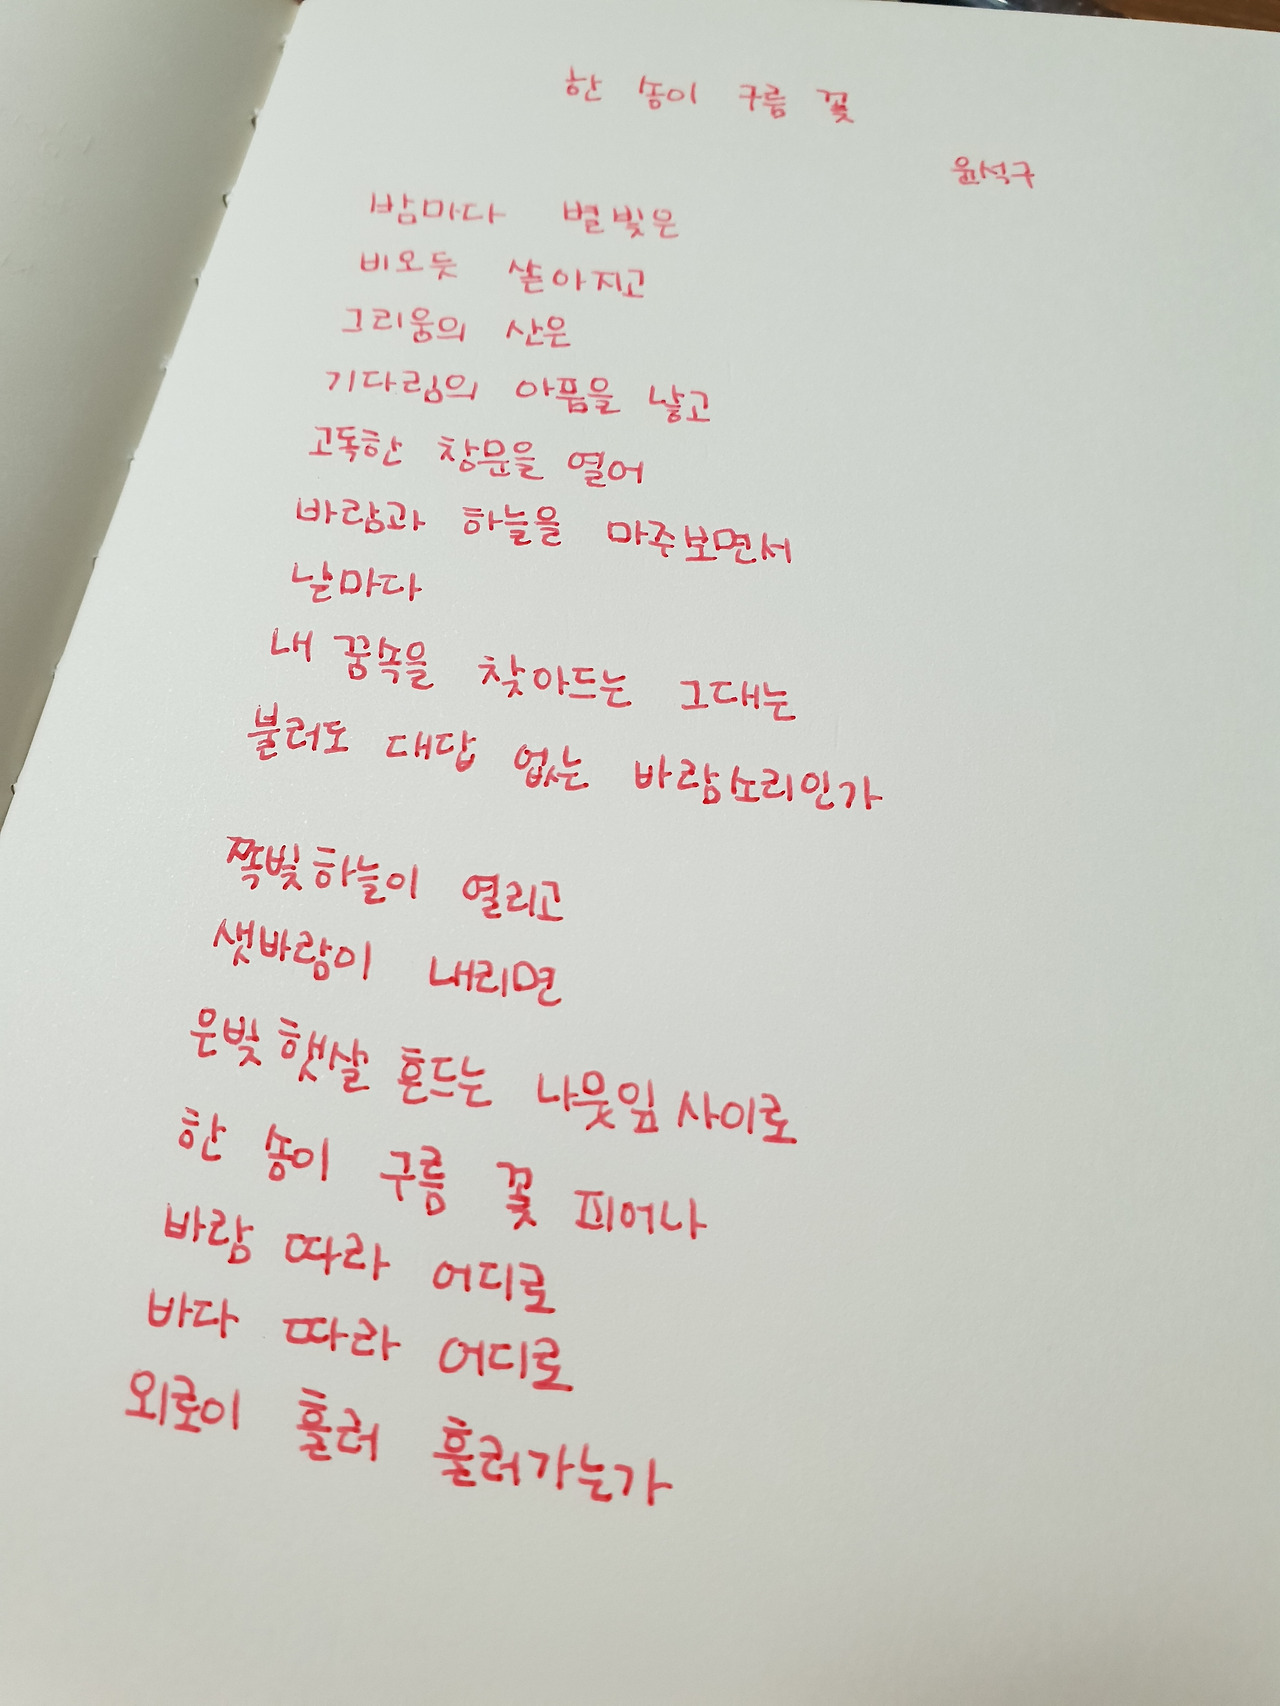 한 송이 구름 꽃
윤석구
밤마다 별빛은
비오듯 쏟아지고
그리움의 산은
기다림의 아픔을 낳고
고독한 창문을 열어
바람과 하늘을 마주보면서
날마다
내 꿈속을 찾아드는 그대는
불러도 대답 없는 바람소리인가
쪽빛하늘이 열리고
샛바람이 내리면
은빛 햇살 흔드는 나뭇잎 사이로
한 송이 구름 꽃 피어나
바람 따라 어디로
바다 따라 어디로
외로이 흘러 흘러가는가